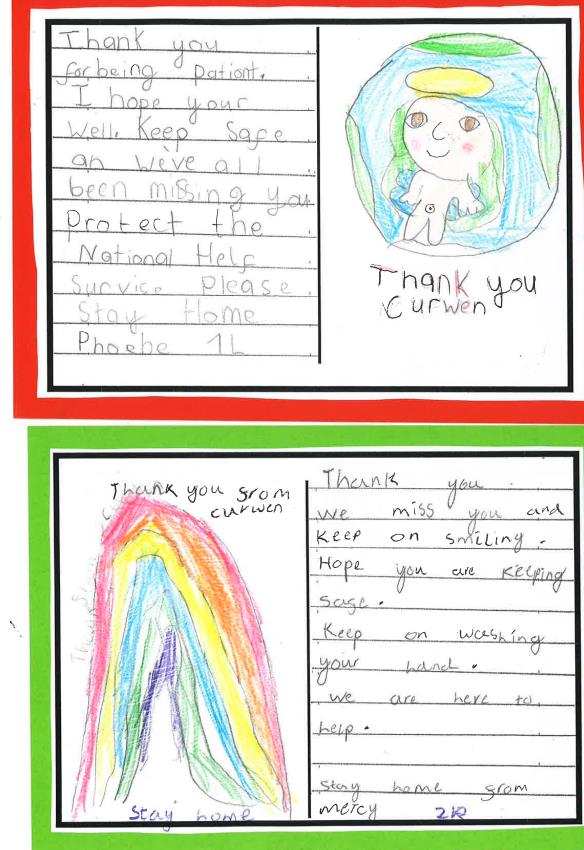 Thank you
for being pationt.
I hope your
Well. Keep Safe
an we've all
been missing you
Protect the
National Helf
Survice Please
Stay Home
Phoebe 1L
Thank you
Curwen
Thank you from
curwen
Stay home
Thank you.
we miss you and
keep on smiling.
Hope you are keeping
safe.
Keep on washing
your hand.
we are here to
help.
stay home from
mercy 2R